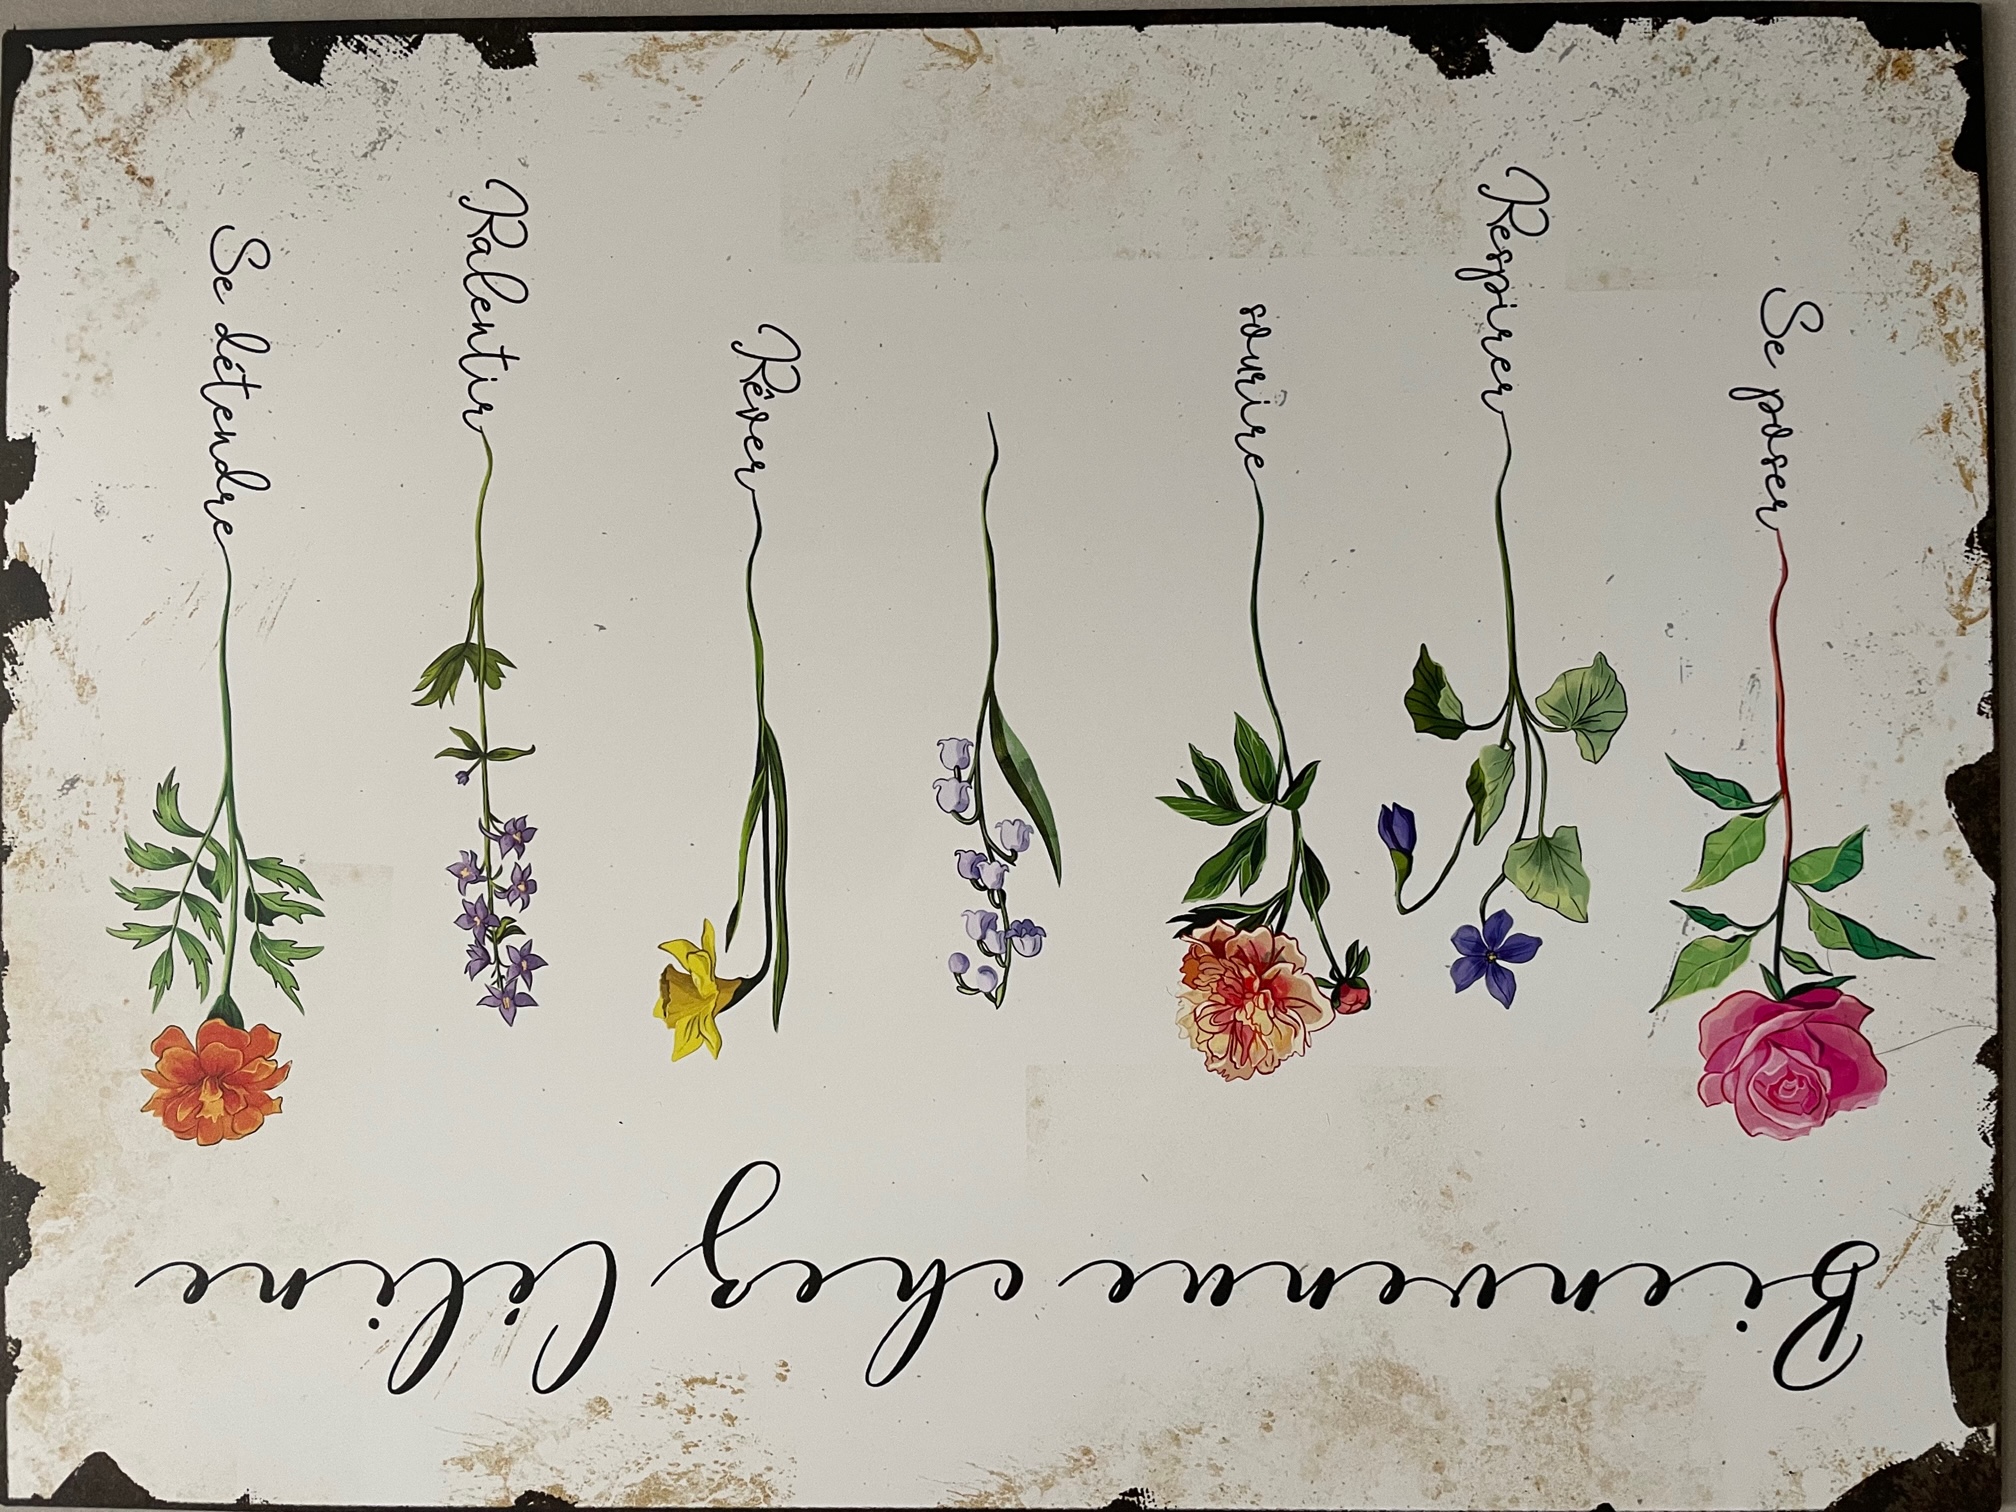 Bienvenue chez Céline
Se poser
Respirer
sourire
Rêver
Ralentir
Se détendre